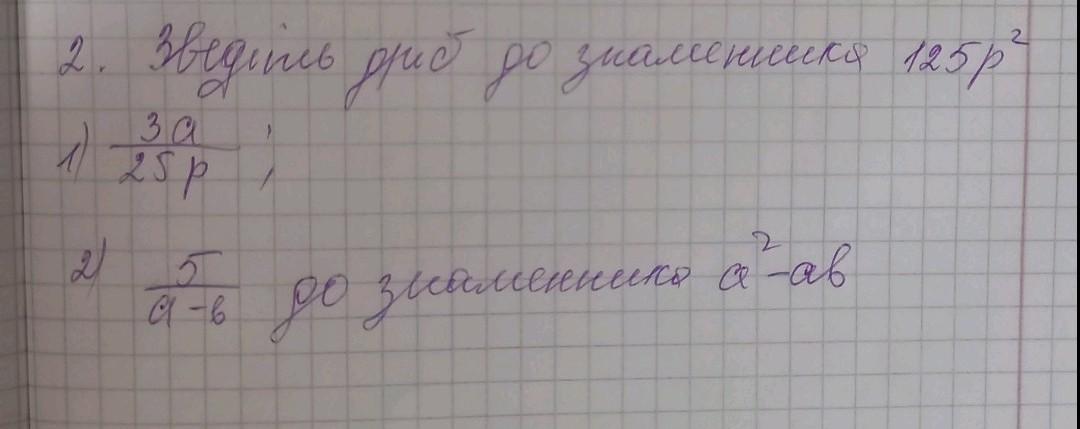 2. Зведіть дріб до знаменника 125p²
1) 3a/25p ;
2) 5/a-b до знаменника a²-ab